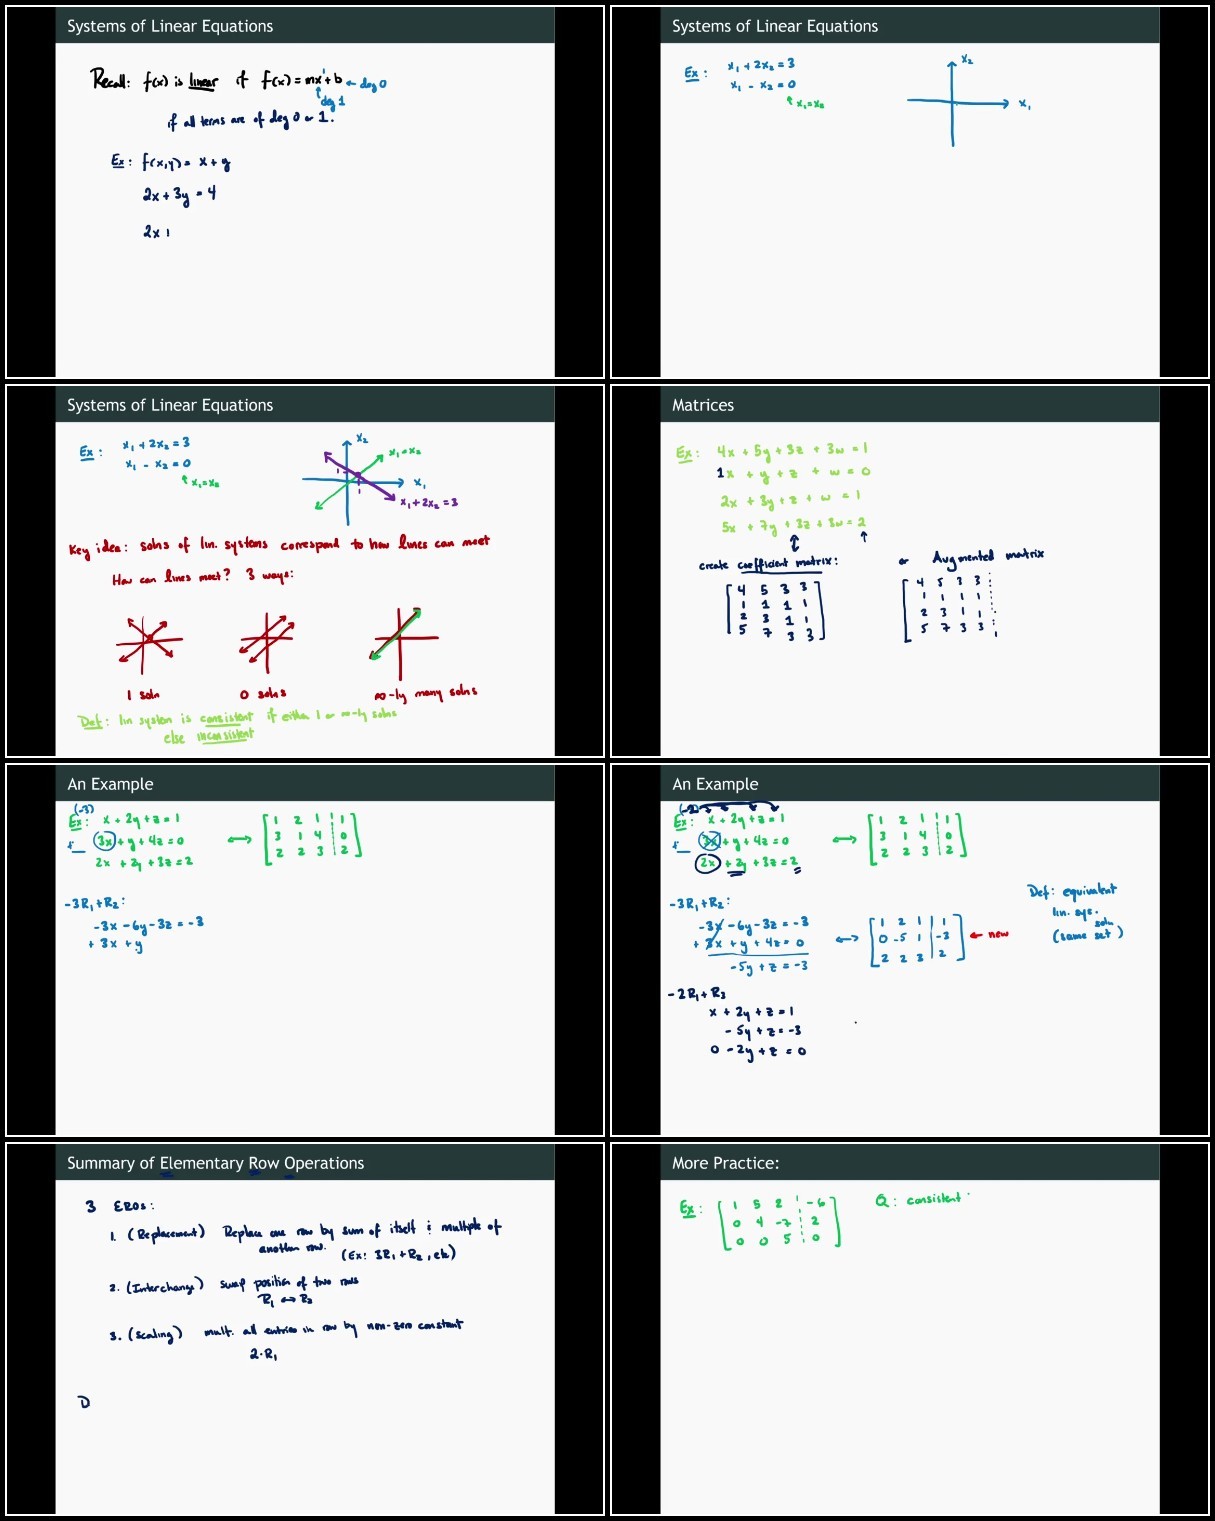 Systems of Linear Equations
Recall: f(x) is linear if f(x) = mx¹ + b ← deg 0
↑
deg 1
if all terms are of deg 0 or 1.
Ex: f(x,y) = x + y
2x + 3y = 4
2x
Systems of Linear Equations
Ex: x₁ + 2x₂ = 3
x₁ - x₂ = 0
↑ x₁ = x₂
x₂
x₁
Systems of Linear Equations
Ex: x₁ + 2x₂ = 3
x₁ - x₂ = 0
↑ x₁ = x₂
x₂
x₁ = x₂
1
x₁
1
x₁ + 2x₂ = 3
Key idea: solns of lin. systems correspond to how lines can meet
How can lines meet? 3 ways:
1 soln 0 solns ∞-ly many solns
Def: lin system is consistent if either 1 or ∞-ly solns
else inconsistent
Matrices
Ex: 4x + 5y + 3z + 3w = 1
1x + y + z + w = 0
2x + 3y + z + w = 1
5x + 7y + 3z + 3w = 2
create coefficient matrix: or Augmented matrix
4 5 3 3
1 1 1 1
2 3 1 1
5 7 3 3
4 5 3 3
1 1 1 1
2 3 1 1
5 7 3 3
An Example
(-3)
Ex: x + 2y + z = 1
+ 3x + y + 4z = 0 ↔
2x + 2y + 3z = 2
1 2 1 | 1
3 1 4 | 0
2 2 3 | 2
-3R₁ + R₂:
-3x - 6y - 3z = -3
+ 3x + y
An Example
(-2)
Ex: x + 2y + z = 1
+ 3x + y + 4z = 0 ↔
2x + 2y + 3z = 2
1 2 1 | 1
3 1 4 | 0
2 2 3 | 2
-3R₁ + R₂:
-3x - 6y - 3z = -3
+ 3x + y + 4z = 0 ↔
-5y + z = -3
1 2 1 | 1
0 -5 1 | -3 ← new
2 2 3 | 2
Def: equivalent
lin. sys.
(same soln set)
-2R₁ + R₃
x + 2y + z = 1
- 5y + z = -3
0 - 2y + z = 0
Summary of Elementary Row Operations
3 EROs:
1. (Replacement) Replace one row by sum of itself & multiple of
another row. (Ex: 3R₁ + R₂, etc)
2. (Interchange) swap position of two rows
R₁ ↔ R₂
3. (Scaling) mult. all entries in row by non-zero constant
2·R₁
D
More Practice:
Ex:
1 5 2 | -6
0 4 -7 | 2
0 0 5 | 0
Q: consistent